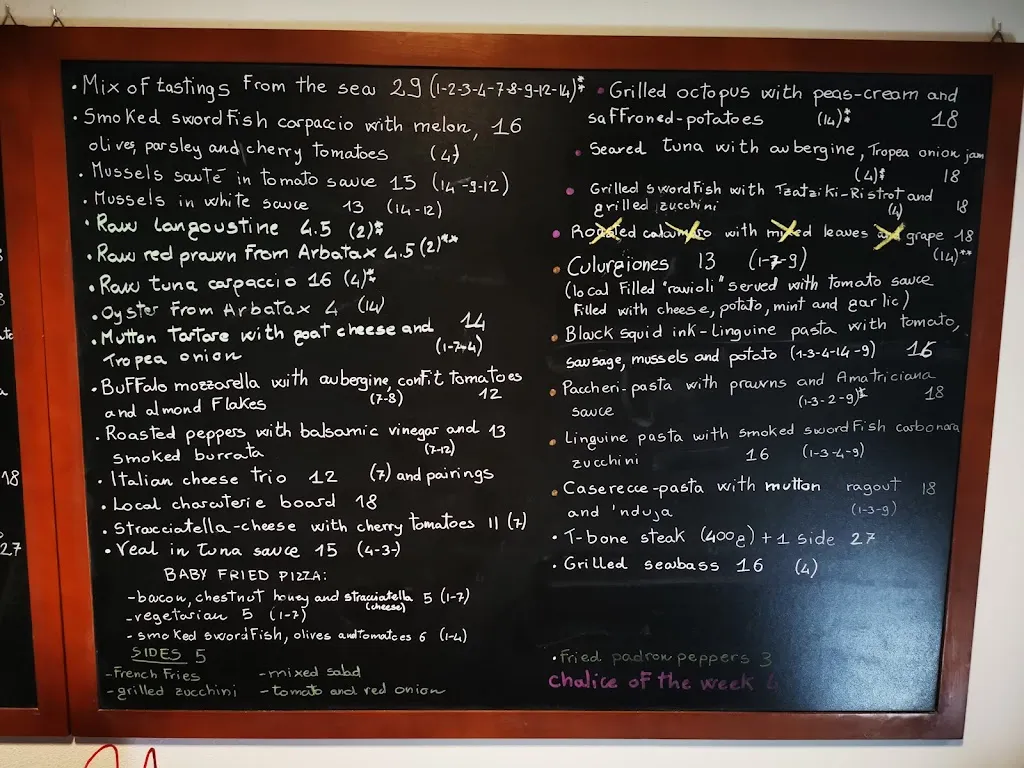 • Mix of tastings from the sea 29 (1-2-3-4-7-8-9-12-14)*
• Smoked swordfish carpaccio with melon, 16
olives, parsley and cherry tomatoes (4)
• Mussels sauté in tomato sauce 15 (14-9-12)
• Mussels in white sauce 13 (14-12)
• Raw langoustine 4.5 (2)*
• Raw red prawn from Arbatax 4.5 (2)**
• Raw tuna carpaccio 16 (4)*
• Oyster from Arbatax 4 (14)
• Mutton Tartare with goat cheese and 14
Tropea onion (1-7-4)
• Buffalo mozzarella with aubergine, confit tomatoes
and almond flakes (7-8) 12
• Roasted peppers with balsamic vinegar and 13
smoked burrata (7-12)
• Italian cheese trio 12 (7) and pairings
• Local charcuterie board 18
• Stracciatella-cheese with cherry tomatoes 11 (7)
• Veal in tuna sauce 15 (4-3-)
BABY FRIED PIZZA:
- bacon, chestnut honey and stracciatella 5 (1-7)
(cheese)
- vegetarian 5 (1-7)
- smoked swordfish, olives and tomatoes 6 (1-4)
SIDES 5
- French fries - mixed salad
- grilled zucchini - tomato and red onion
• Grilled octopus with peas-cream and
saffroned-potatoes (14)* 18
• Seared tuna with aubergine, Tropea onion jam
(4)* 18
• Grilled swordfish with Tzatziki-Ristrot and
grilled zucchini (4) 18
• Roasted calamaro with mixed leaves and grape 18
(14)**
• Culurgiones 13 (1-7-9)
(local filled "ravioli" served with tomato sauce
filled with cheese, potato, mint and garlic)
• Black squid ink-linguine pasta with tomato,
sausage, mussels and potato (1-3-4-14-9) 16
• Paccheri-pasta with prawns and Amatriciana
sauce (1-3-2-9)* 18
• Linguine pasta with smoked swordfish carbonara
zucchini 16 (1-3-4-9)
• Caserecce-pasta with mutton ragout 18
and 'nduja (1-3-9)
• T-bone steak (400g) + 1 side 27
• Grilled seabass 16 (4)
• Fried padron peppers 3
chalice of the week 6
18
27